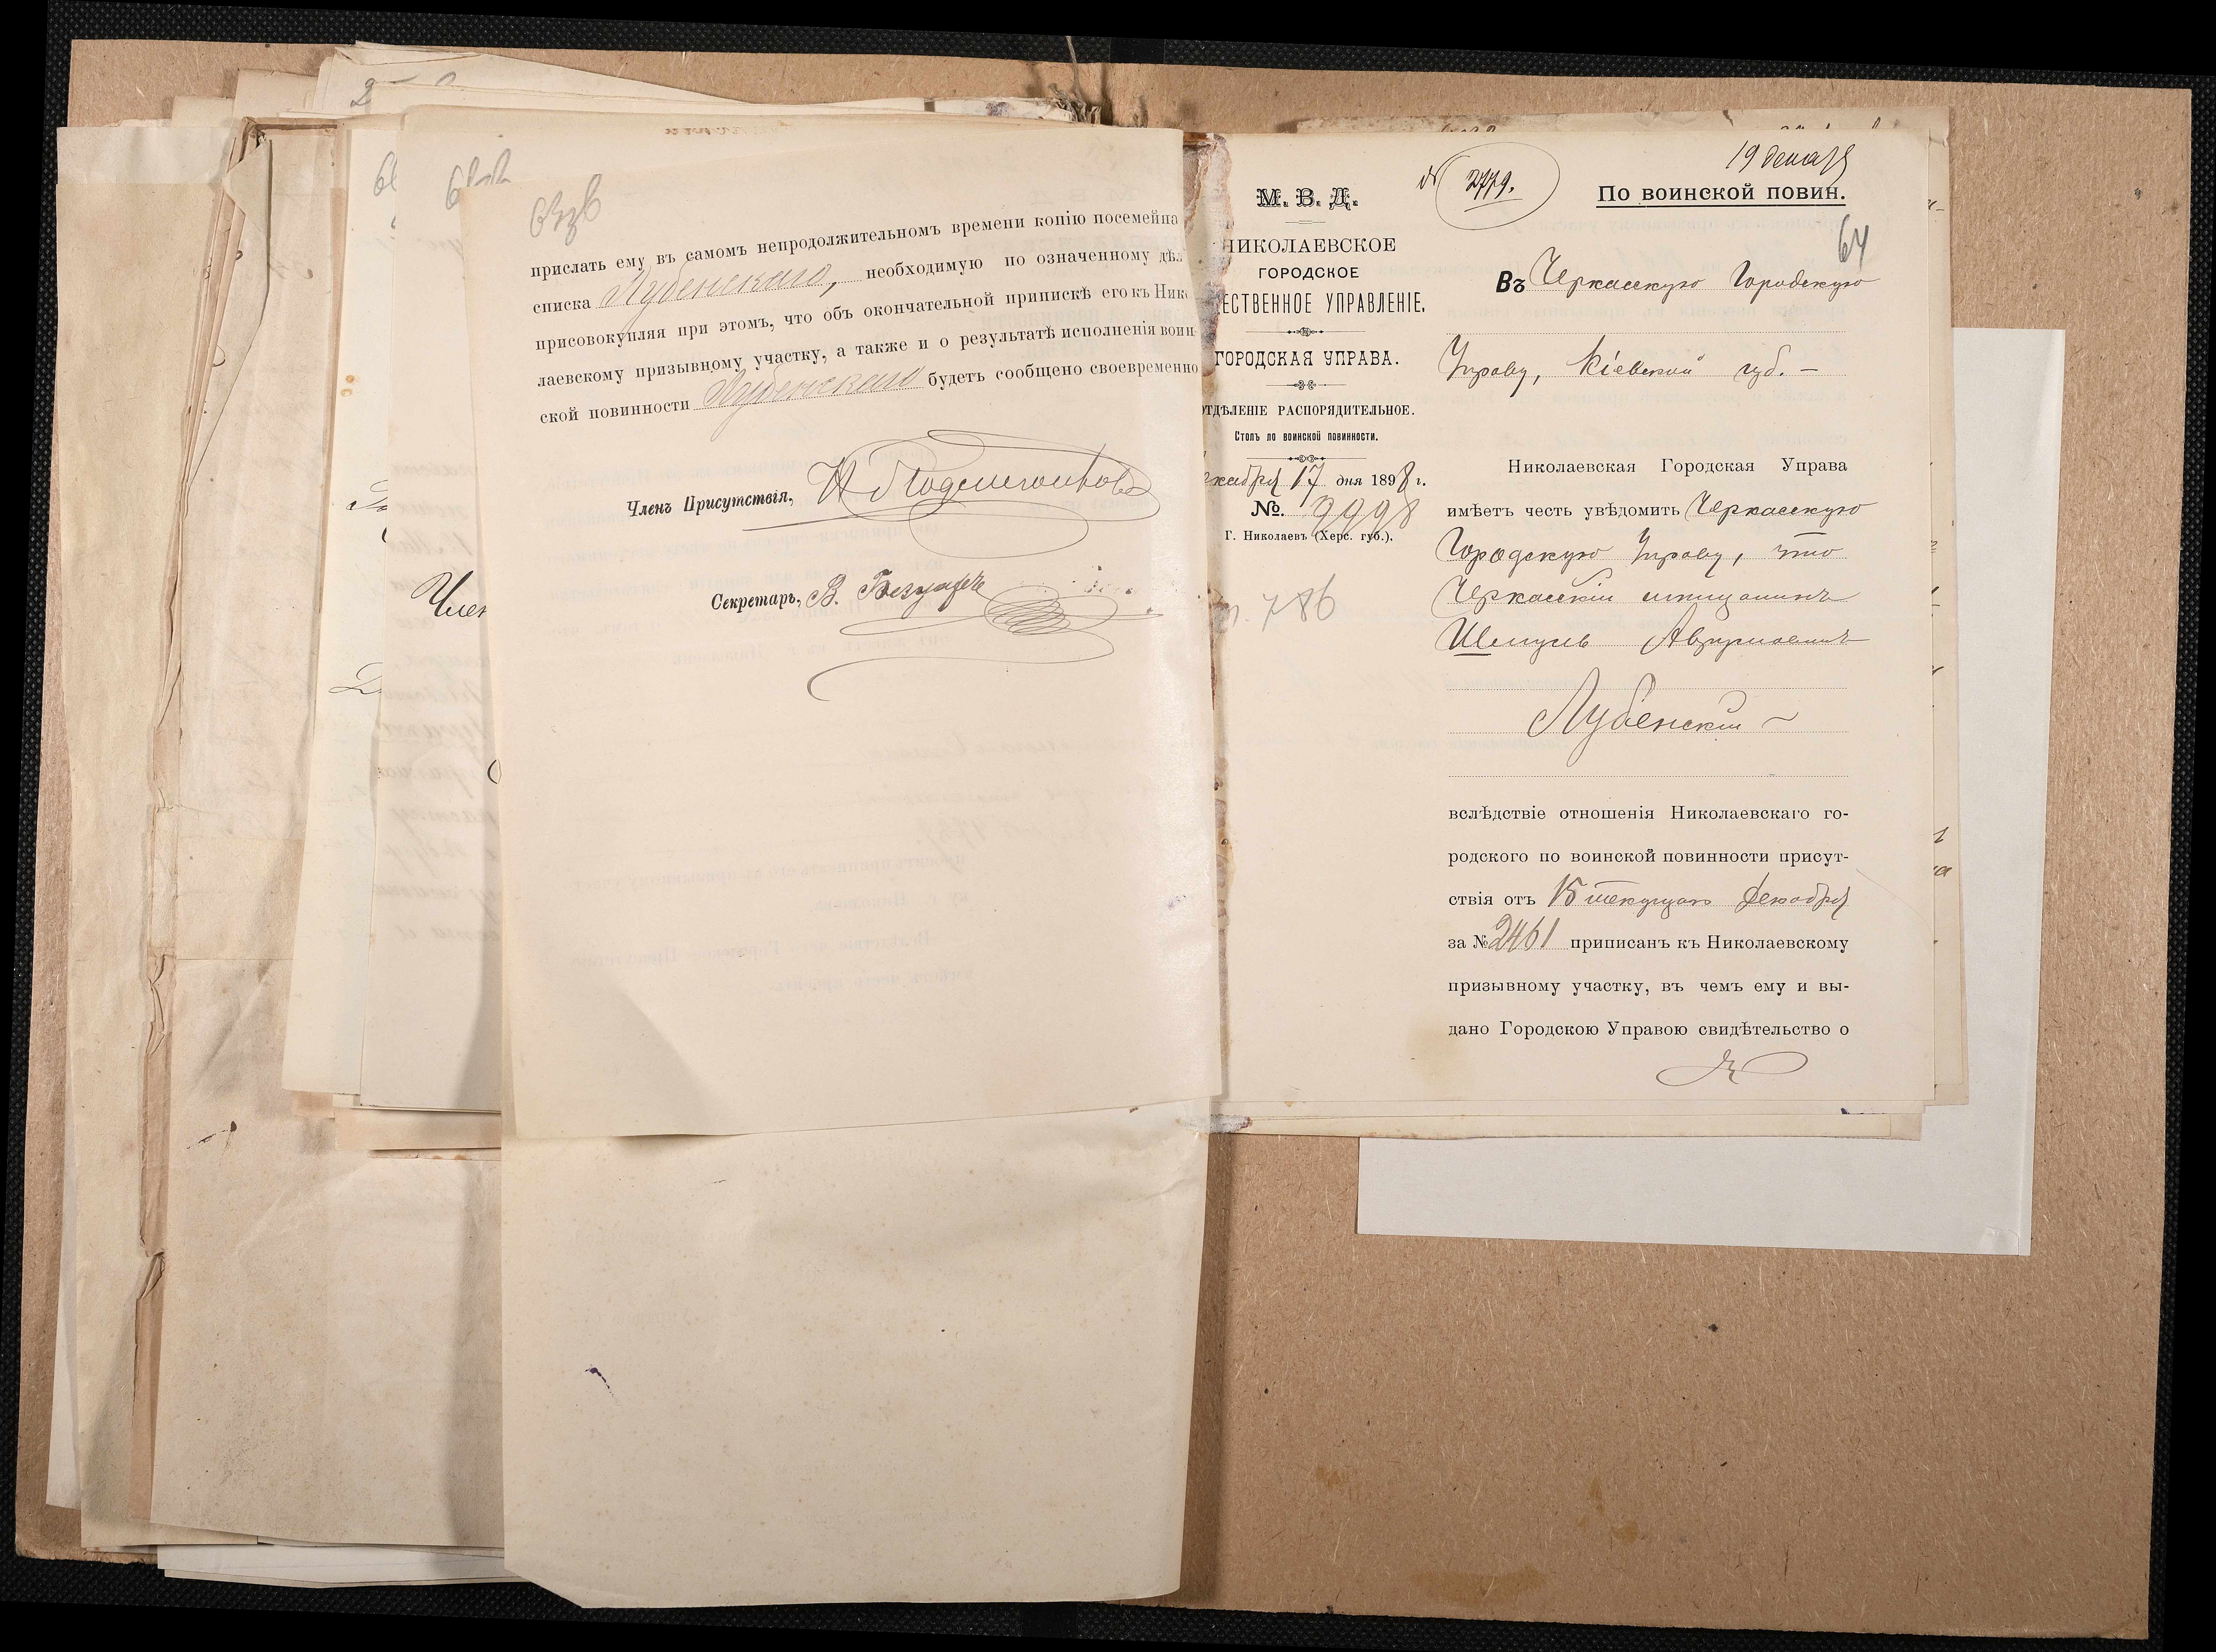 63зв
прислать ему въ самомъ непродолжительномъ времени копію посемейна
списка Лубенскаго, необходимую по означенному дѣл
присовокупляя при этомъ, что объ окончательной припискѣ его къ Нико
лаевскому призывному участку, а также и о результатѣ исполненія воин-
ской повинности Лубенскаго будетъ сообщено своевременно
Членъ Присутствія,
Секретарь, В.
Член
М. В. Д.
НИКОЛАЕВСКОЕ
ГОРОДСКОЕ
ЕСТВЕННОЕ УПРАВЛЕНІЕ.
ГОРОДСКАЯ УПРАВА.
ОТДѢЛЕНІЕ РАСПОРЯДИТЕЛЬНОЕ.
Столъ по воинской повинности.
екабря 17 дня 1898 г.
No. 3998
Г. Николаевъ (Херс. губ.).
786
№ 2779.
19 декабря
По воинской повин.
64
Въ Черкасскую Городскую
Управу, Кіевской губ. –
Николаевская Городская Управа
имѣетъ честь увѣдомить Черкасскую
Городскую Управу, что
Черкасскій мѣщанинъ
Шмуль Абрумовичъ
Лубенскій ~
вслѣдствіе отношенія Николаевскаго го-
родского по воинской повинности присут-
ствія отъ 15 текущаго Декабря
за № 2461 приписанъ къ Николаевскому
призывному участку, въ чемъ ему и вы-
дано Городскою Управою свидѣтельство о